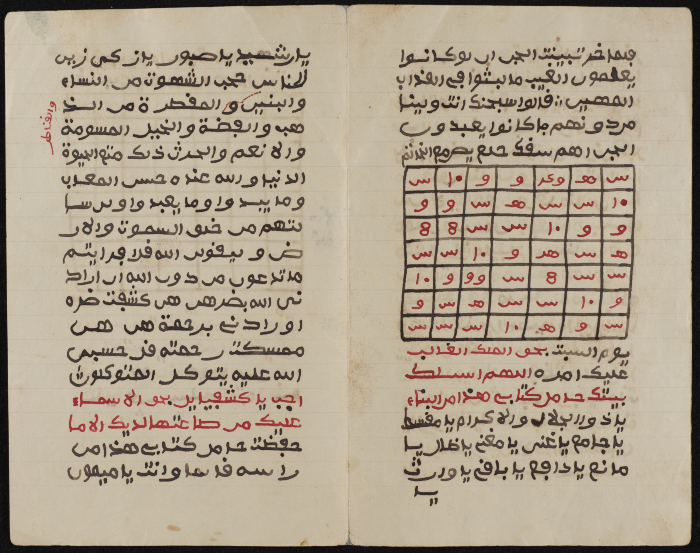 فلما خر تبينت الجن ان لو كانوا
يعلمون الغيب ما لبثوا في العذاب
المهين قالوا سبحنك انت ولينا
من دونهم بل كانوا يعبدون
الجن اهم
س هـ و و ١٠ س
١٠ س س هـ س و و
و و ١٠ س س 8 8
س هـ و ١٠ س س
س س 8 س وو و ١٠
و ١٠ س س هـ س و
س و هـ ١٠ س س س
يوم السبت بحق الملك الغالب
عليك امره اللهم اسلك
بيتك حامل كتابي هذا من ابناء
يا ذو الجلال والاكرام يا مقسط
يا جامع يا غني يا مغني يا ضار يا
مانع يا دافع يا نافع يا وارث
يا
يا رشهيد يا صبور يا زكي زين
للناس حب الشهوت من النساء
والبنين والمقطرة من الذ
والقناطر
هب والفضة والخيل المسومة
والانعم والحرث ذلك متع الحيوة
الدنيا والله عنده حسن المعاب
وما يبدوا وما يعيدوا ولين سا
لتهم من خلق السموت والار
ض و ليقولن الله قل افرايتم
ما تدعون من دون الله ان اراد
ني الله بضر هل هن كشفت ضره
او ارادني برحمة هل هن
ممسكت رحمته قل حسبي
الله عليه يتوكل المتوكلون
اجب يا كشفيايل بحق الاسماء
عليك من طاعتها لديك الا ما
حفظت حامل كتابي هذا من
راسه وانت يا ميمون